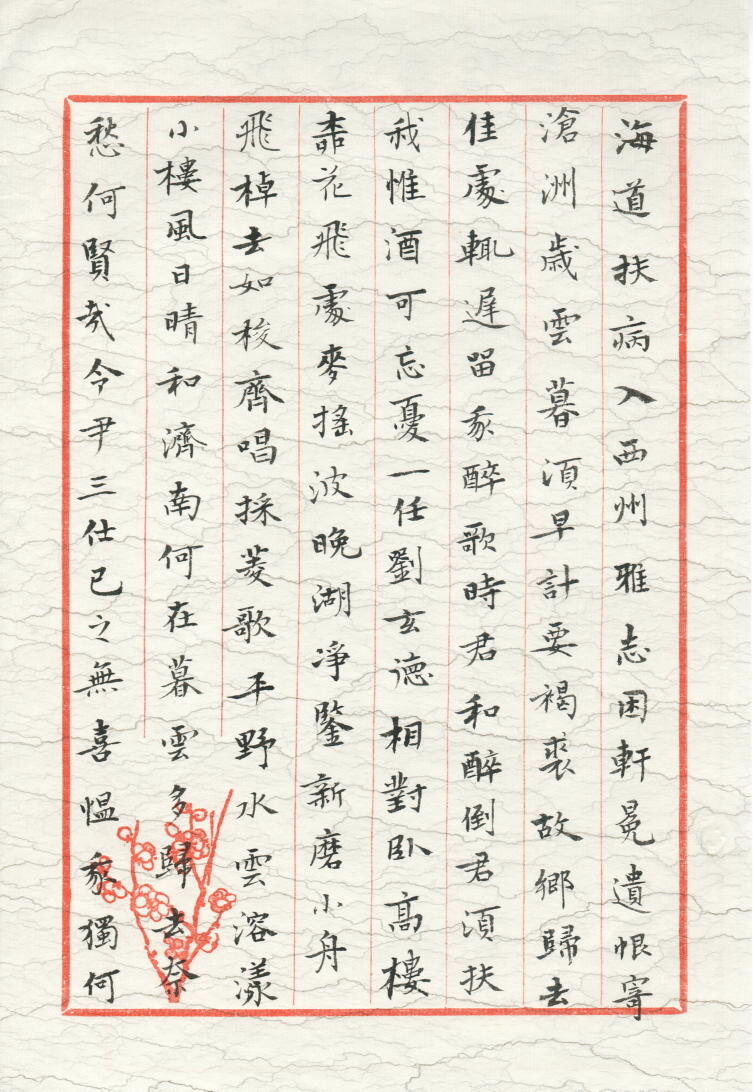 海道扶病入西州雅志困軒冕遺恨寄
滄洲歲雲暮須早計要褐裘故鄉歸去
佳處輒遲留我醉歌時君和醉倒君須扶
我惟酒可忘憂一任劉玄德相對臥高樓
杏花飛處麥搖波晚湖淨鑒新磨小舟
飛棹去如梭齊唱採菱歌平野水雲溶漾
小樓風日晴和濟南何在暮雲多歸去奈
愁何賢哉令尹三仕已之無喜慍我獨何